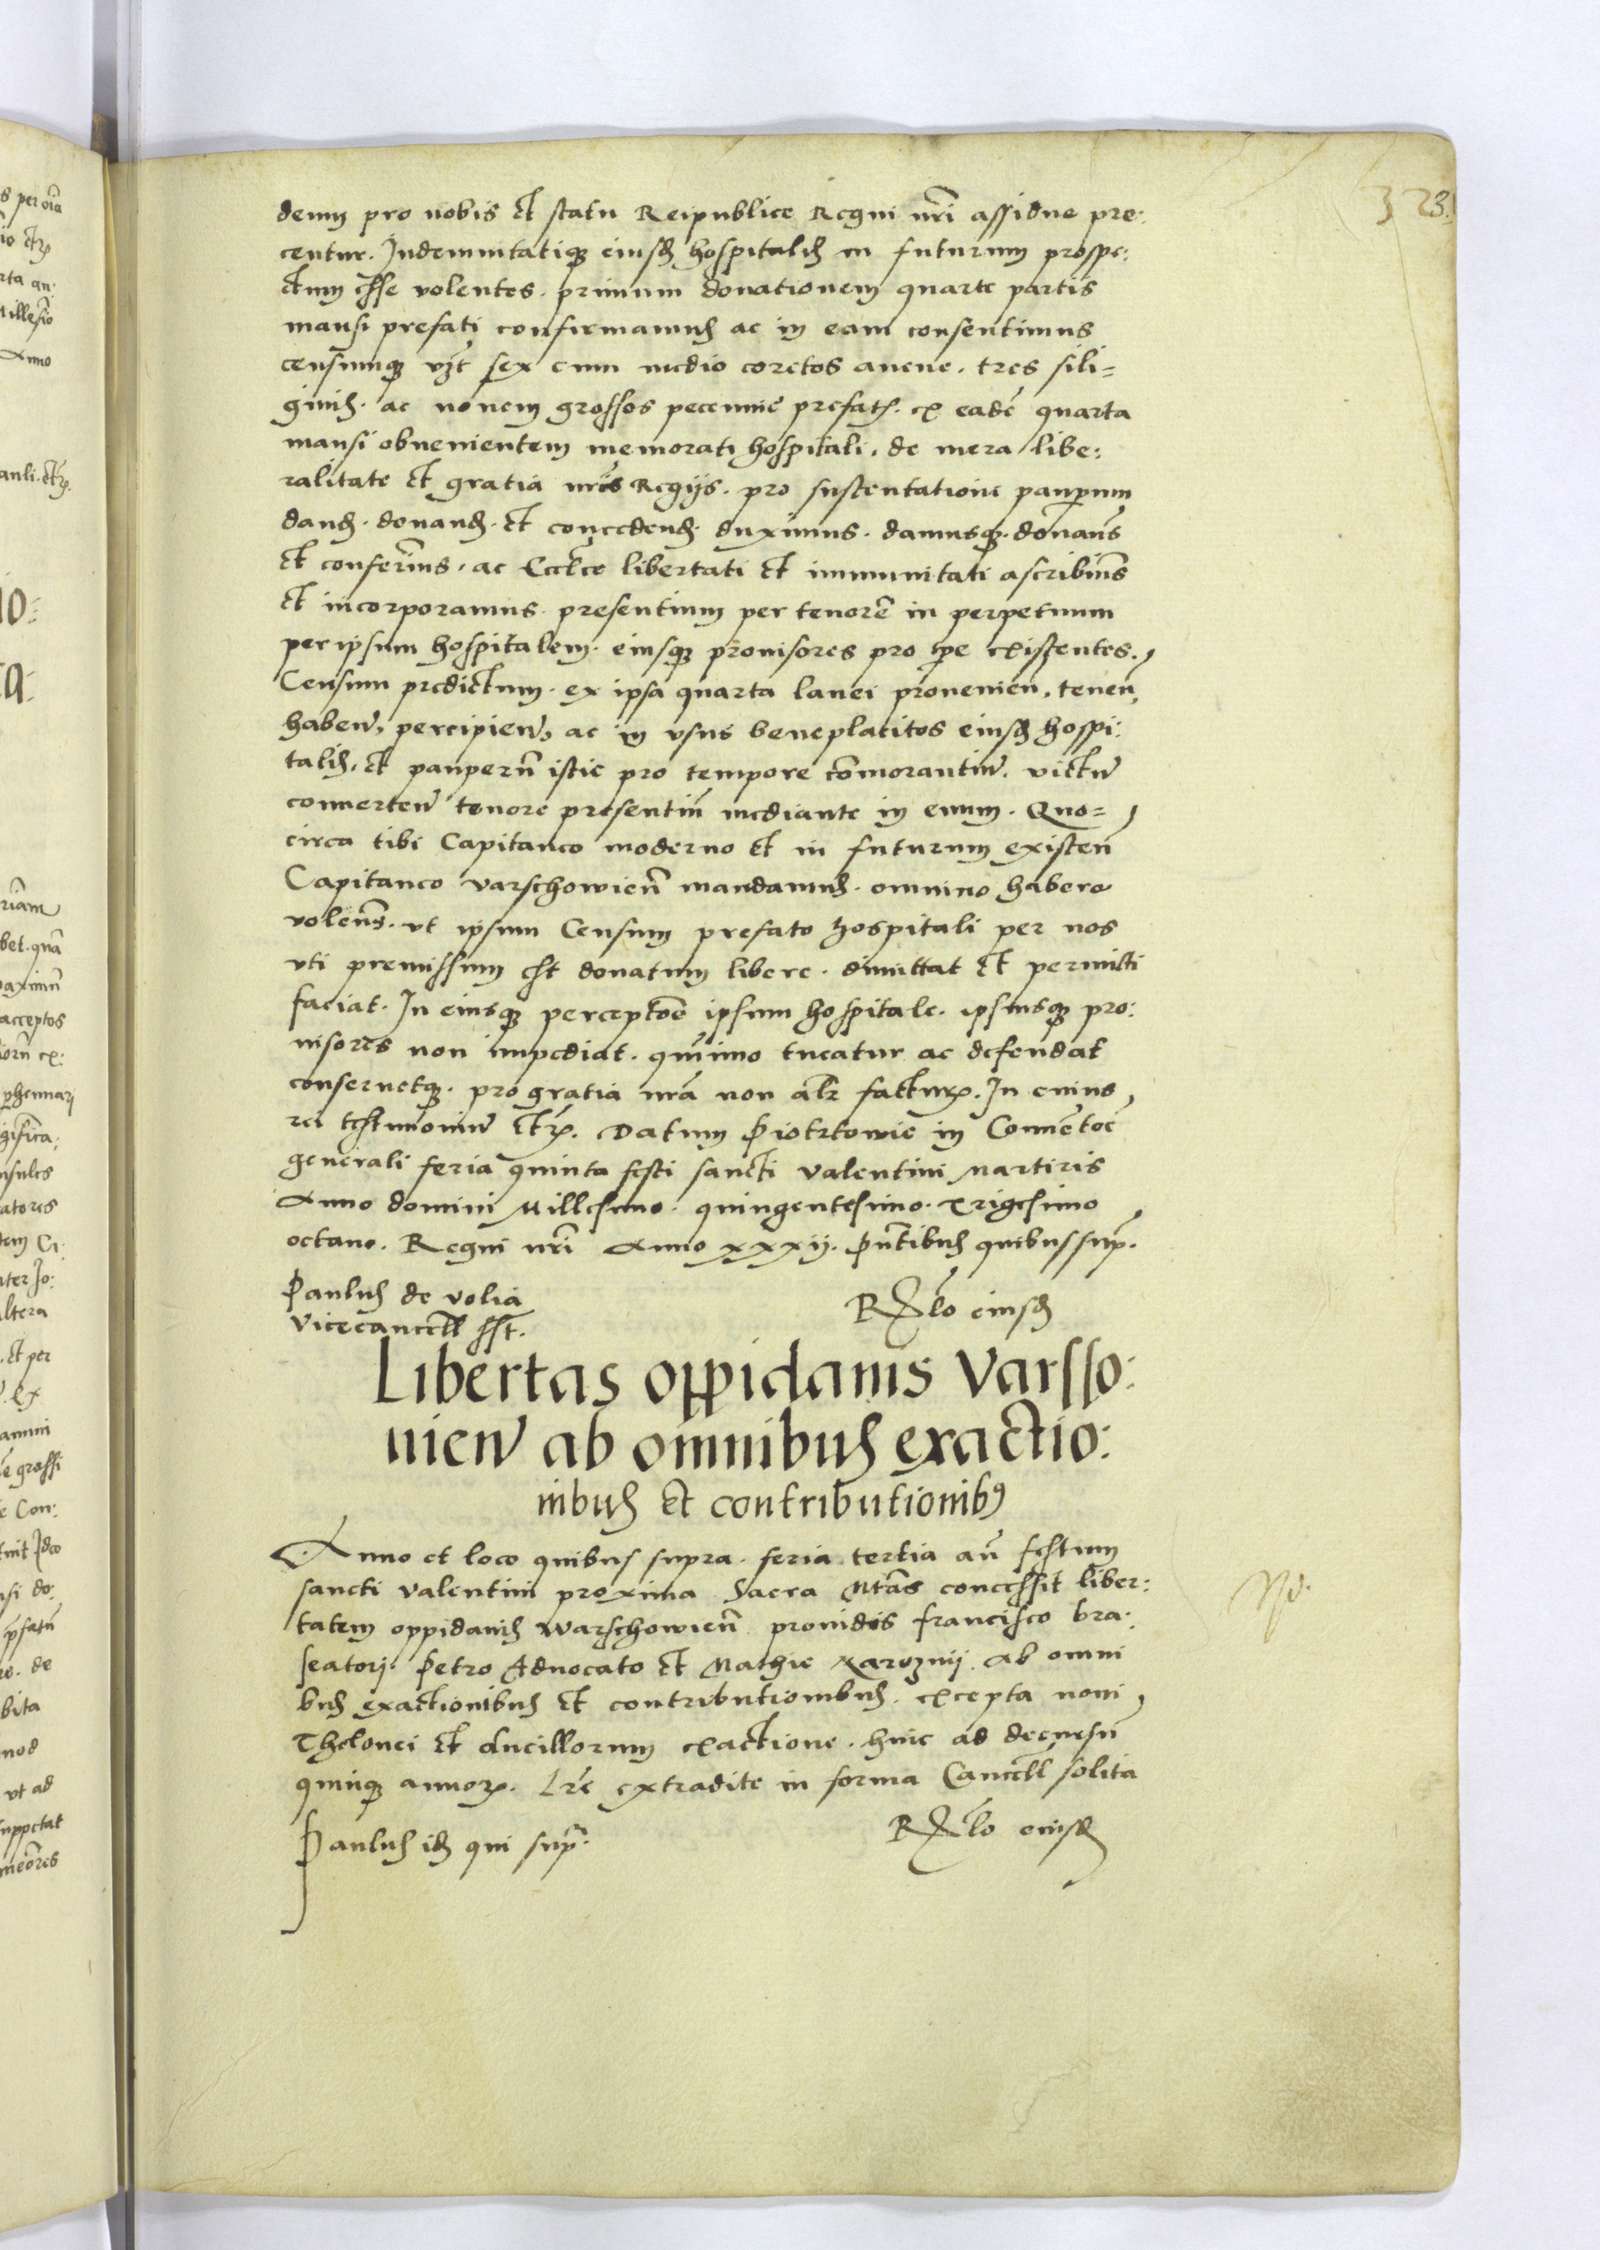 323.
deum pro nobis et statu Reipublice Regni nri assidue pre:
centur. Indemnitatiq eiusd hospitalis in futurum prospe:
ctum esse volentes. primum donationem quarte partis
mansi prefati confirmamus ac in eam consentimus
censumq vzt sex cum medio coretos avene. tres sili=
ginis. ac novem grossos pecunie prefat. ex eade quarta
mansi obvenientem memorati hospitali. de mera libe:
ralitate et gratia nris Regijs. pro sustentatione pauperum
dand. donand. et concedend. duximus. damusq. donams
et conferims. ac Eccle libertati et immunitati ascribims
et incorporamus presentium per tenore in perpetuum
per ipsum hospitalem. eiusq provisores pro tpe existentes.
Censum predictum. ex ipsa quarta lanei provenien. tenen
haben, percipien, ac in usus beneplacitos eiusd hospi:
talis. et pauperu istic pro tempore comorantiu. victu
converten tenore presentiu mediante in evum. Quo=
circa tibi Capitaneo moderno et in futurum existen
Capitaneo varschowien mandamus. omnino habere
volens. vt ipsum Censum prefato hospitali per nos
vti premissum est donatum libere. dimittat et permitti
faciat. In eiusq perceptoe ipsum hospitale. ipsiusq pro:
visores non impediat. quimo tueatur ac defendat
conservetq. pro gratia nra non alr factur. In cuius
rei testimoniu etc. Datum Piotrkowie in Conuetoe
generali feria quinta festi sancti Valentini Martiris
Anno domini Millesimo. quingentesimo. Trigesimo
octavo. Regni nri Anno xxxij. Pntibus quibus sup.
Paulus de volia
Vicecancell sst.
Rlo eiusd
Libertas oppidanis Varsso:
vien ab omnibus exactio:
nibus et contributionib9
Anno et loco quibus supra. feria tertia an festum
sancti Valentini proxima Sacra Mtas concessit liber:
tatem oppidanis Warschowien providis francisco bra:
seatorj. Petro Advocato et Mathie Ab omni
bus exactionibus et contributionibus. excepta novi
Thelonei et ducillorum exactione. hinc ad decursu
quinq annor. Lre extradite in forma Cancell solita
Paulus id qui sup.
Rlo eiusd